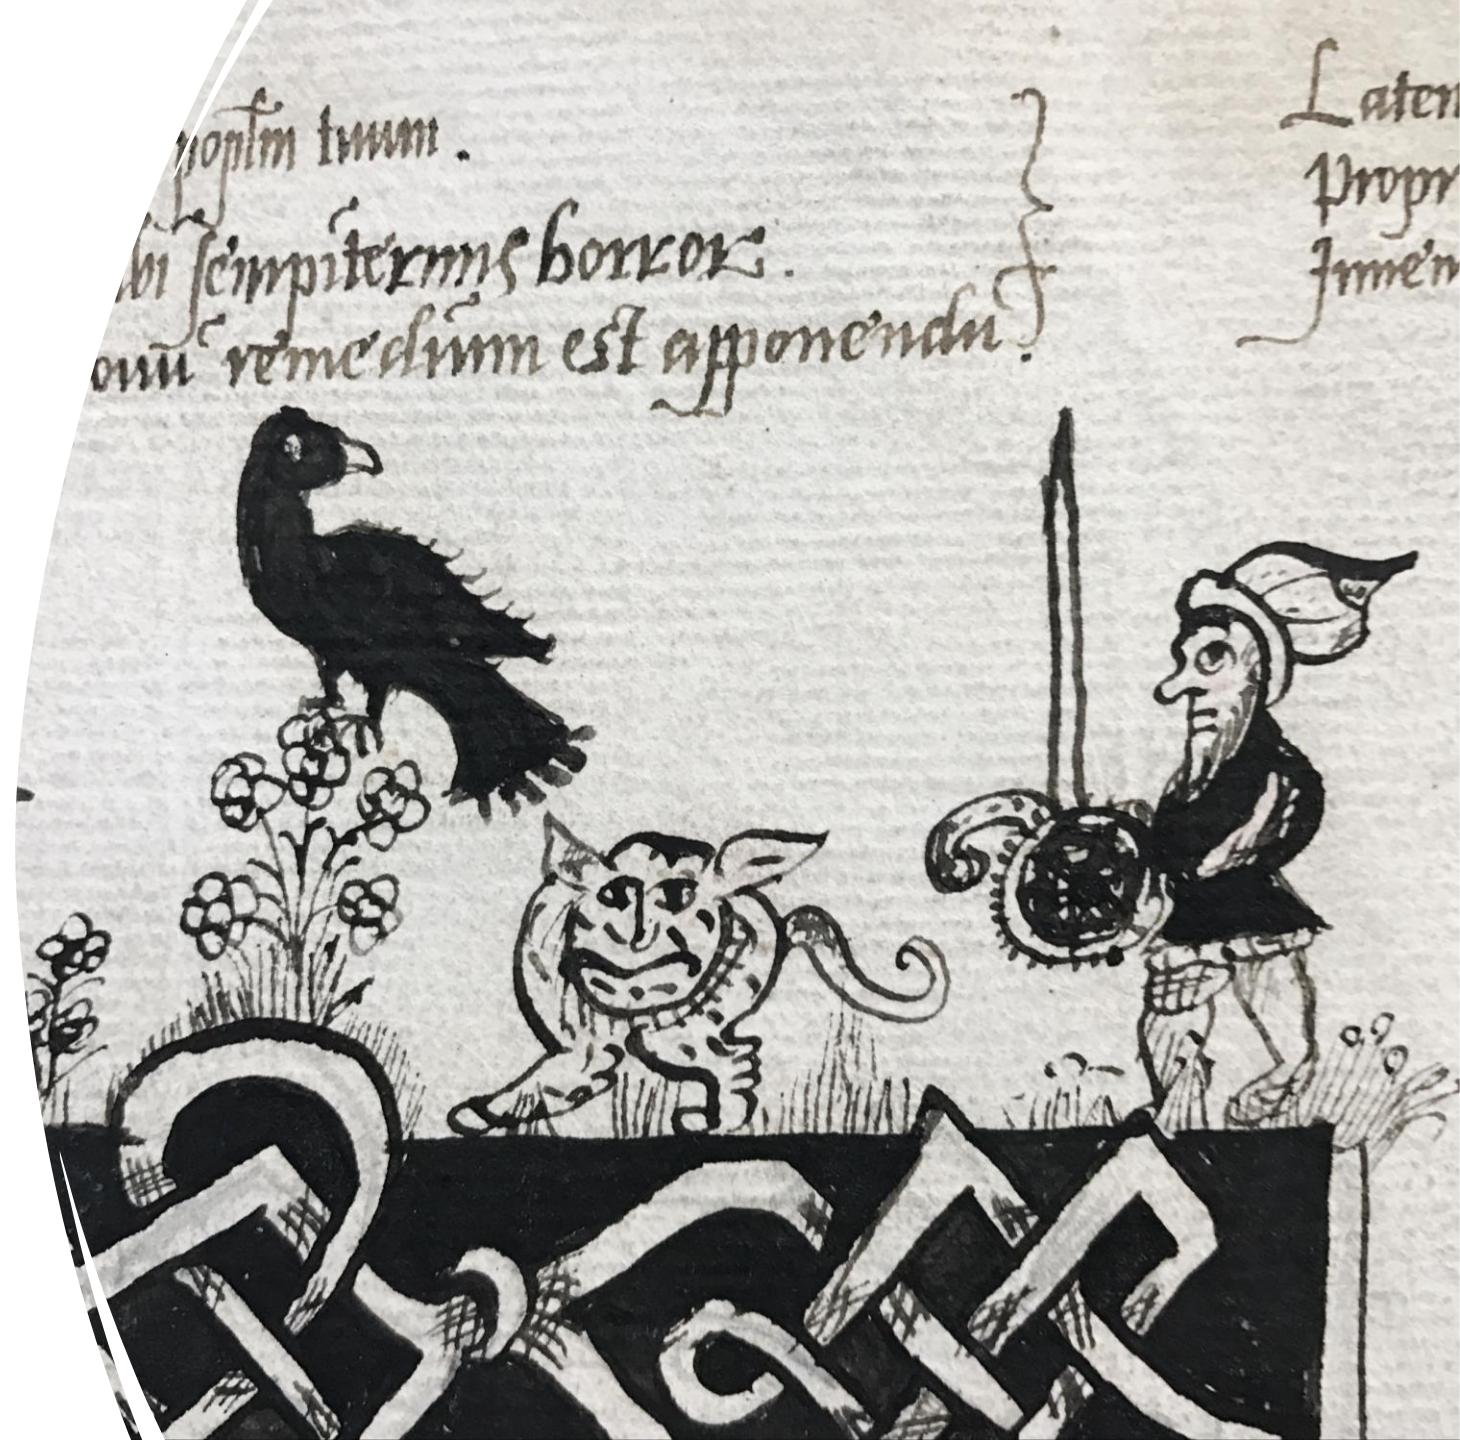 popl̄m tuum.
sempiternus horror.
remedium est apponendū.
Laten
Propr
Inuen